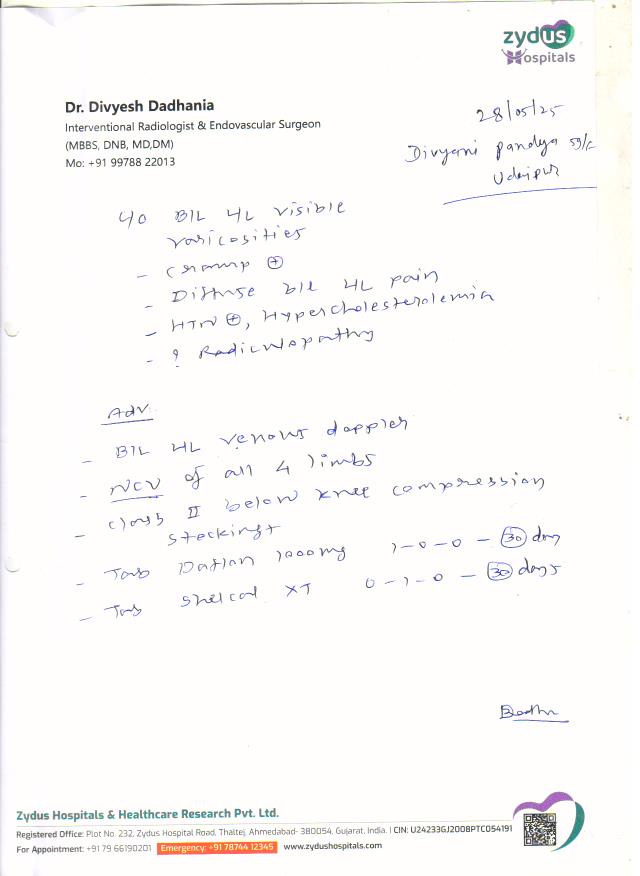 zydus
Hospitals
Dr. Divyesh Dadhania
Interventional Radiologist & Endovascular Surgeon
(MBBS, DNB, MD,DM)
Mo: +91 99788 22013
28/05/25
Divyani Pandya 59/
Udaipur
B/L LL visible
varicosities
- Cramp ⊕
- Diffuse b/l LL pain
- HTN ⊕, Hypercholesterolemia
- ? Radiculopathy
Adv.
- B/L LL venous doppler
- NCV of all 4 limbs
- Class II below knee compression
stockings
- Tab 1000mg 1-0-0 - 30 day
- Tab Shelcal XT 0-1-0 - 30 days
Zydus Hospitals & Healthcare Research Pvt. Ltd.
Registered Office: Plot No. 232, Zydus Hospital Road, Thaltej, Ahmedabad- 380054, Gujarat, India. | CIN: U24233GJ2008PTC054191
For Appointment: +91 79 66190201 Emergency: +91 78744 12345 www.zydushospitals.com